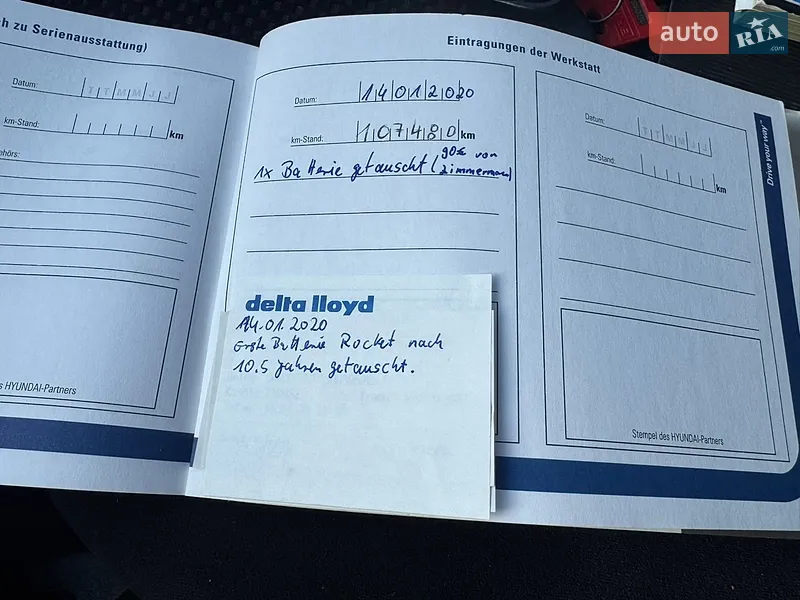 auto RIA.com
h zu Serienausstattung)
Datum: T T M M J J
km-Stand: km
ehörs:
s HYUNDAI-Partners
Eintragungen der Werkstatt
Datum: 14012020
km-Stand: 107480 km
1x Batterie getauscht (90€ von
Zimmermann)
delta lloyd
14.01.2020
erste Batterie Rocket nach
10.5 Jahren getauscht.
Datum: T T M M J J
km-Stand: km
Stempel des HYUNDAI-Partners
Drive your way™